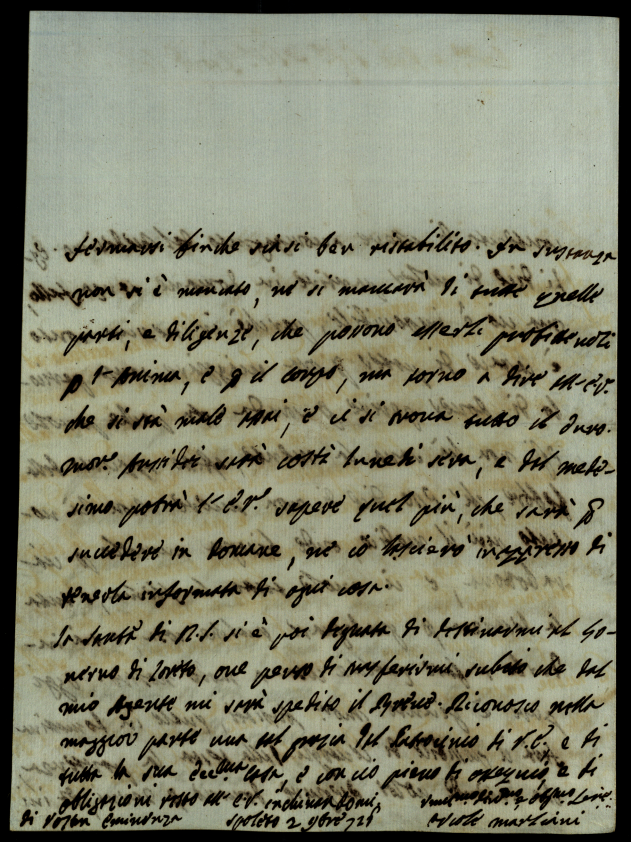 fermarsi finche siasi ben ristabilito. In sustanza
non si è mancato, ne si mancarà di tutte quelle
parti, e diligenze, che possono esserli
p l'anima, e p il corpo, ma torno a dire all'E.V.
che si stà male assai, e ci si trova tutto il duro.
Mon.r sarà costì lunedì sera, e dal mede-
simo potrà l'E.V. sapere quel più, che sarà p
succedere in domane, ne io lascierò inappresso di
tenerla informata di ogni cosa.
La Santà di N.S. si è poi degnata di destinarmi al Go-
verno di Loreto, ove penso di trasferirmi subito che dal
mio Agente mi sarà spedito il Breve. Riconosco nella
maggior parte una tal grazia dal Patrocinio di V.E., e di
tutta la sua Ecc.ma Casa, e con ciò pieno di ossequio, e di
obligazioni resto all'E.V. inchinandomi,
di Vostra Eminenza Spoleto 2 9bre 721
Ercole